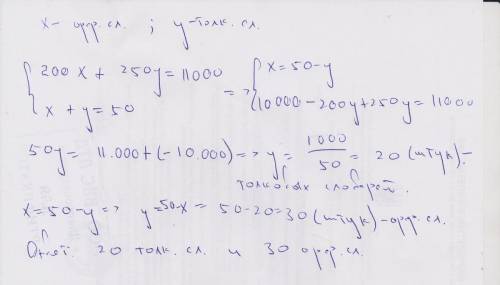 x - орф. сл. ; y - толк. сл.
{ 200x + 250y = 11000 => { x = 50 - y
{ x + y = 50 { 10000 - 200y + 250y = 11000
50y = 11.000 + (-10.000) => y = 1000/50 = 20 (штук) -
толковых словарей.
x = 50 - y => y = 50 - x = 50 - 20 = 30 (штук) - орф. сл.
Ответ: 20 толк. сл. и 30 орф. сл.